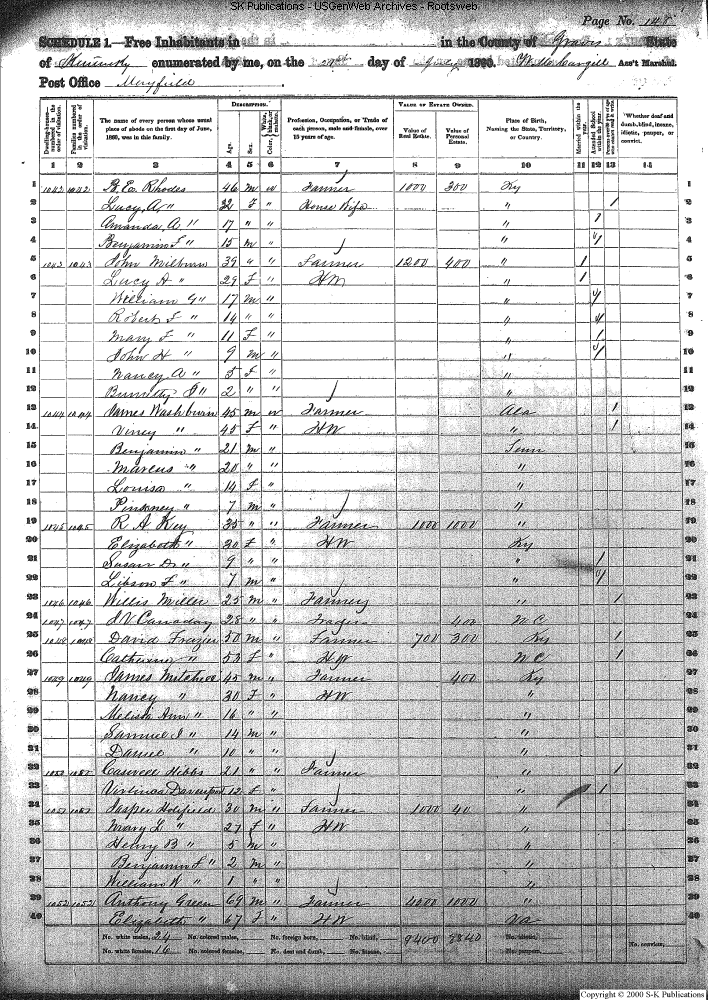 SK Publications - USGenWeb Archives - Rootsweb
Page No. 148
SCHEDULE 1.—Free Inhabitants in in the County of Graves State
of Kentucky enumerated by me, on the day of 1860. Ass't Marshal.
Post Office Mayfield
Dwelling-houses—numbered in the order of visitation. Families numbered in the order of visitation. The name of every person whose usual place of abode on the first day of June, 1860, was in this family. DESCRIPTION. Age. Sex. Color, White, black, or mulatto. Profession, Occupation, or Trade of each person, male and female, over 15 years of age. VALUE OF ESTATE OWNED. Value of Real Estate. Value of Personal Estate. Place of Birth, Naming the State, Territory, or Country. Married within the year. Attended School within the year. Whether deaf and dumb, blind, insane, idiotic, pauper, or convict.
1 2 3 4 5 6 7 8 9 10 11 12 13 14
1 1042 1042 Rhodes 46 m w Farmer 1000 300 Ky 1
2 Lucy A " 32 F " House Wife " 1 2
3 Amanda A " 17 " " " 1 3
4 Benjamin F " 15 m " " 1 4
5 1043 1043 John Wilburn 39 " " Farmer 1200 400 " 1 5
6 Lucy A " 29 F " HW " 1 6
7 William G " 17 m " " 1 7
8 Robert F " 14 " " " 1 8
9 Mary F " 11 F " " 1 9
10 John H " 9 m " " 1 10
11 Nancy A " 5 F " " 11
12 " 2 " " " 12
13 1044 1044 James Washburn 45 m w Farmer Ala 1 13
14 Viney " 45 F " HW " 1 14
15 Benjamin " 21 m " Tenn 15
16 Marcus " 20 " " " 16
17 Louisa " 14 F " 17
18 Pinkney " 7 m " " 18
19 1045 1045 R A Key 35 " " Farmer 1000 1000 " 19
20 Elizabeth " 30 F " HW Ky 20
21 Susan D " 9 " " " 1 21
22 Libson F " 7 m " " 1 22
23 1046 1046 Willis Miller 25 m " Farmer " 1 23
24 1047 1047 J V Canaday 28 " " Trader 400 N C 24
25 1048 1048 David Frazier 50 m " Farmer 700 300 Ky 1 25
26 Catherine " 53 F " HW N C 1 26
27 1049 1049 James Mitchell 45 m " Farmer 400 Ky 27
28 Nancy " 30 F " HW " 28
29 Melissa Ann " 16 " " " 29
30 Samuel J " 14 m " " 30
31 Daniel " 10 " " " 31
32 1050 1050 Caswell Hibbs 21 " " Farmer " 1 32
33 Davenport 12 F " " 1 33
34 1051 1051 Jasper Holifield 30 m " Farmer 1000 40 " 34
35 Mary L " 27 F " HW " 35
36 Henry B " 5 m " " 36
37 Benjamin F " 2 m " " 37
38 William W " 1 " " " 38
39 1052 1052 Anthony Green 69 m " Farmer 4000 1000 " 39
40 Elizabeth " 67 F " HW Va 40
No. white males, 24 No. colored males, No. foreign born, No. blind, 9400 3340 No. idiotic, No. convicts,
No. white females, 16 No. colored females, No. deaf and dumb, No. insane, No. paupers,
Copyright © 2000 S-K Publications